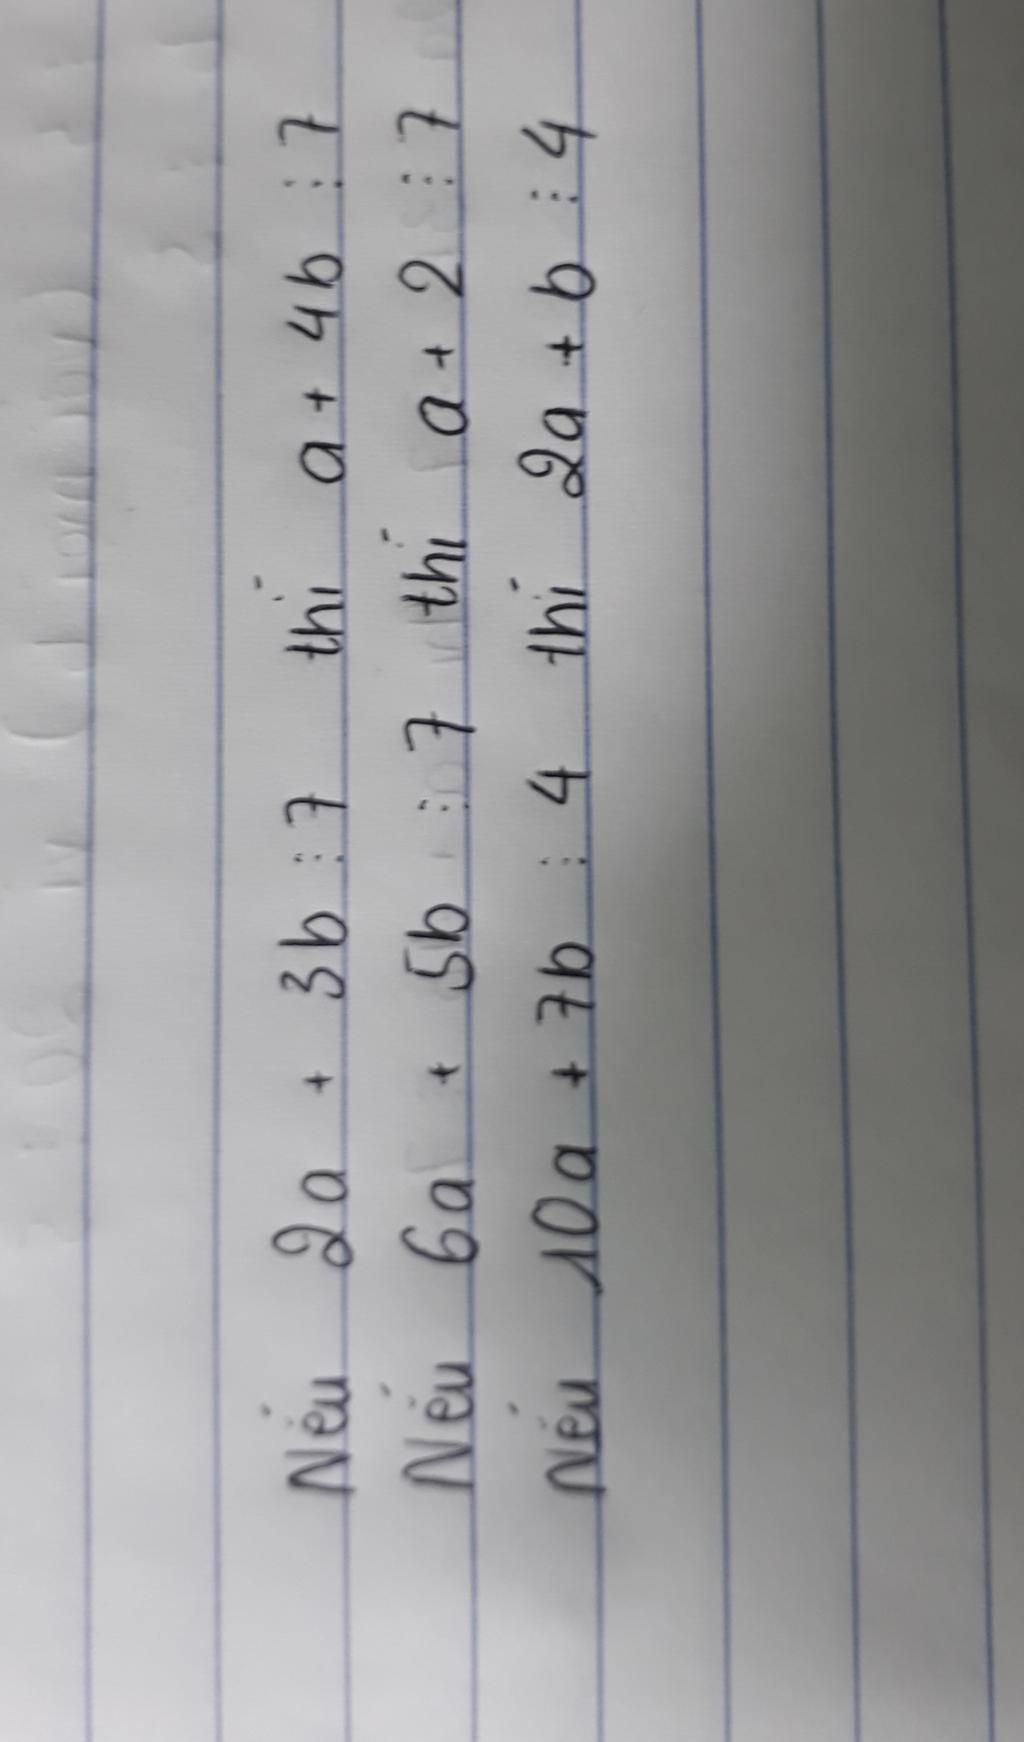 Nếu 2a + 3b ⋮ 7 thì a + 4b ⋮ 7
Nếu 6a + 5b ⋮ 7 thì a + 2 ⋮ 7
Nếu 10a + 7b ⋮ 4 thì 2a + b ⋮ 4